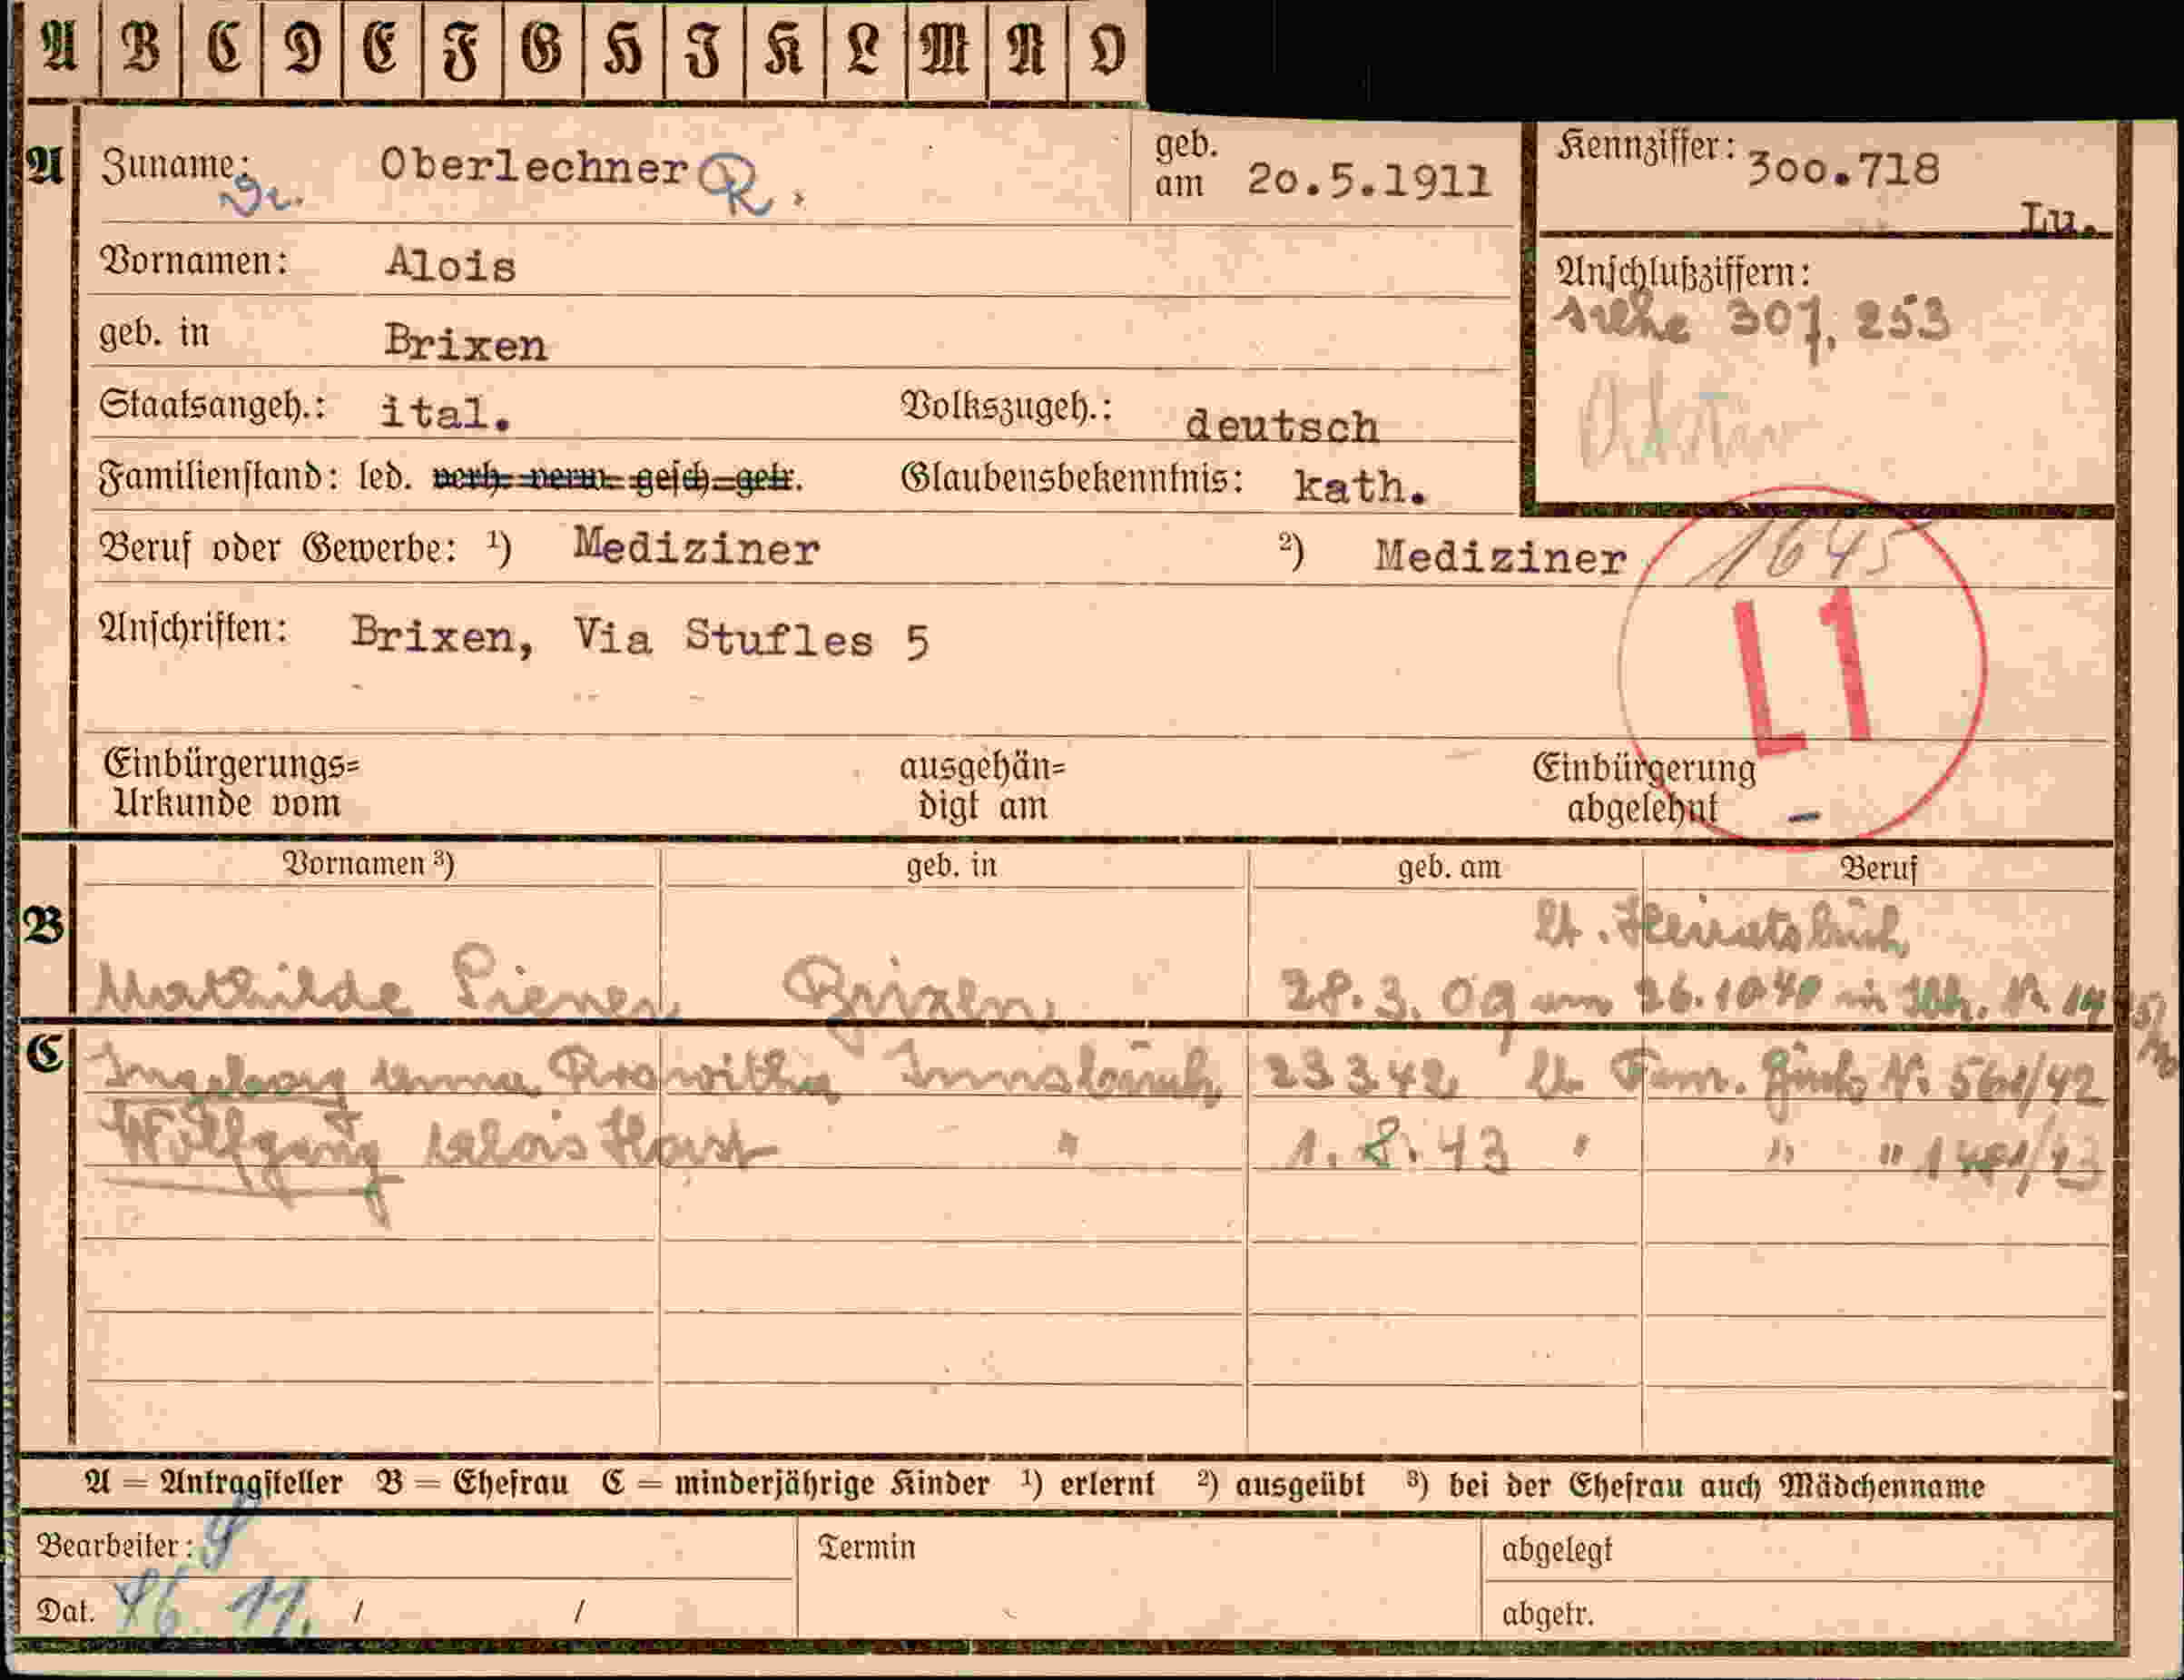 A B C D E F G H I K L M N O
A Zuname: Oberlechner R. geb. am 20.5.1911 Kennziffer: 300.718
Dr. Lu.
Vornamen: Alois Anschlußziffern:
siehe 307.253
geb. in Brixen
Staatsangeh.: ital. Volkszugeh.: deutsch
Familienstand: led. verh. verw. gesch. getr. Glaubensbekenntnis: kath.
Beruf oder Gewerbe: ¹) Mediziner ²) Mediziner 1645
Anschriften: Brixen, Via Stufles 5 L1
Einbürgerungs=
Urkunde vom
ausgehän=
digt am
Einbürgerung
abgelehnt –
Vornamen ³) geb. in geb. am Beruf
B lt. Heiratsbuch
Mathilde Brixen 28.3.09 am 26.10 40 in
C Ingeborg Anna Roswitha Innsbruck 23 3 42 lt. 561/42
Wolfgang Alois Horst " 1.8.43 " " "
A = Antragsteller B = Ehefrau C = minderjährige Kinder ¹) erlernt ²) ausgeübt ³) bei der Ehefrau auch Mädchenname
Bearbeiter: Termin abgelegt
Dat. 11. / / abgetr.